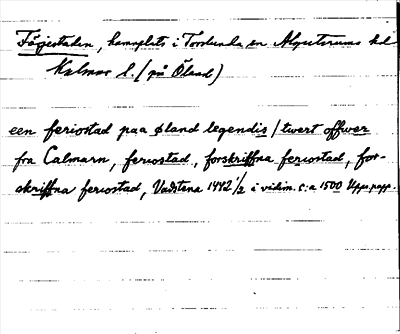 Färjestaden, hamnplats i Torslunda sn Algutsrums hd
Kalmar l. (på Öland)
een feriostad paa øland legendis / twert offwer
fra Calmarn, feriostad, forskriffna feriostad, for-
skriffna feriostad, Vadstena 1442 1/2 i vidim. c:a 1500 Upps. papp.